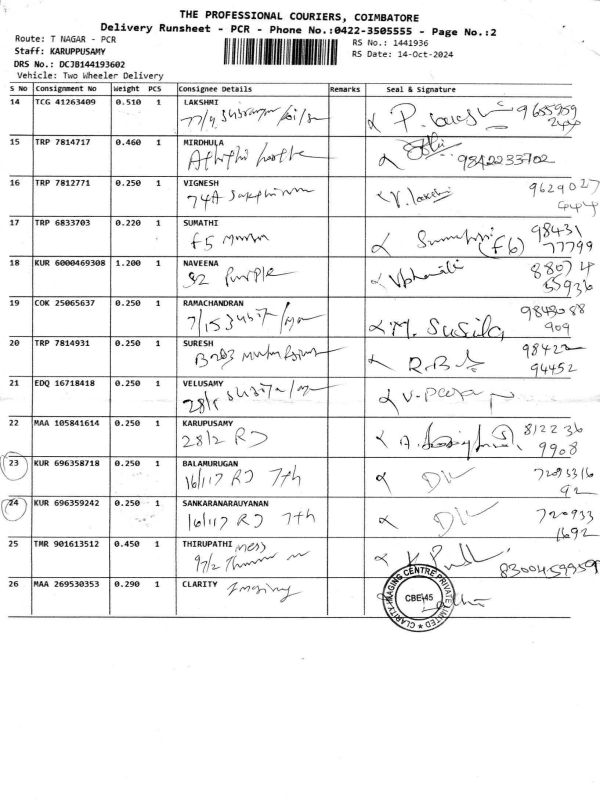 THE PROFESSIONAL COURIERS, COIMBATORE
Delivery Runsheet - PCR - Phone No.:0422-3505555 - Page No.:2
Route: T NAGAR - PCR RS No.: 1441936
Staff: KARUPPUSAMY RS Date: 14-Oct-2024
DRS No.: DCJB144193602
Vehicle: Two Wheeler Delivery
S No Consignment No Weight PCS Consignee Details Remarks Seal & Signature
14 TCG 41263409 0.510 1 LAKSHMI
77/4 P. 9655959
15 TRP 7814717 0.460 1 MIRDHULA
Aththi 9842233702
16 TRP 7812771 0.250 1 VIGNESH 9629027
74A V. 444
17 TRP 6833703 0.220 1 SUMATHI 98431
F5 Sumathi (F6) 77799
18 KUR 6000469308 1.200 1 NAVEENA 88074
S2 Purple 55936
19 COK 25065637 0.250 1 RAMACHANDRAN
7/15 M. Susila 909
20 TRP 7814931 0.250 1 SURESH 98422
R.B 94452
21 EDQ 16718418 0.250 1 VELUSAMY
28/5
22 MAA 105841614 0.250 1 KARUPUSAMY 812236
28/2 RJ A. 9908
23 KUR 696358718 0.250 1 BALAMURUGAN 72093316
16/117 RJ 7th 92
24 KUR 696359242 0.250 1 SANKARANARAUYANAN 720933
16/117 RJ 7th 1692
25 TMR 901613512 0.450 1 THIRUPATHI mess
97/2 K. 8300459959
26 MAA 269530353 0.290 1 CLARITY Imaging
CLARITY IMAGING CENTRE PRIVATE LIMITED
CBE-45